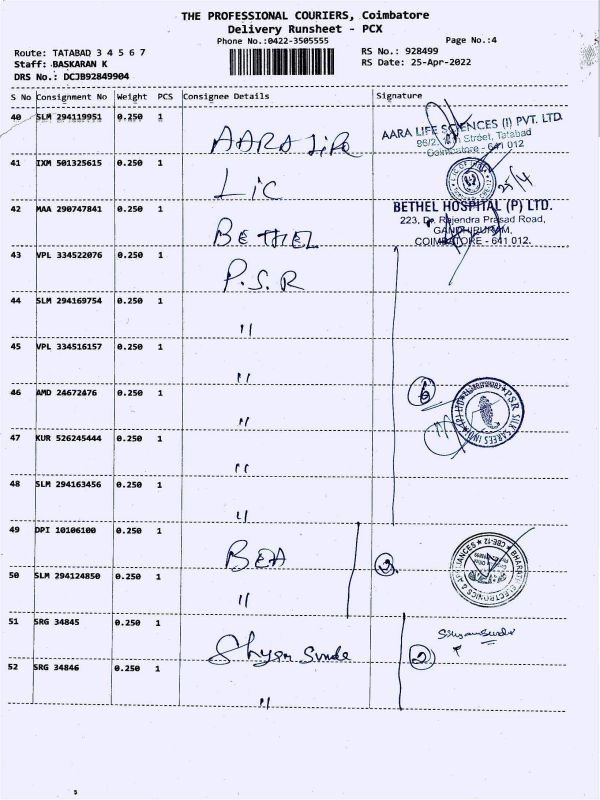 THE PROFESSIONAL COURIERS, Coimbatore
Delivery Runsheet - PCX
Phone No.:0422-3505555
Page No.:4
Route: TATABAD 3 4 5 6 7
RS No.: 928499
Staff: BASKARAN K
RS Date: 25-Apr-2022
DRS No.: DCJB92849904
S No Consignment No Weight PCS Consignee Details Signature
40 SLM 294119951 0.250 1 AARA Life
AARA LIFE SCIENCES (I) PVT. LTD.
Street, Tatabad
Coimbatore - 641 012
41 IXM 501325615 0.250 1 LIC
25/4
42 MAA 290747841 0.250 1 BETHEL
BETHEL HOSPITAL (P) LTD.
223, Dr. Rajendra Prasad Road,
GANDHIPURAM,
COIMBATORE - 641 012.
43 VPL 334522076 0.250 1 P.S.R
44 SLM 294169754 0.250 1 "
45 VPL 334516157 0.250 1 "
46 AMD 24672476 0.250 1 "
6
PSR SILK SAREES INDIA
47 KUR 526245444 0.250 1 "
48 SLM 294163456 0.250 1 "
49 DPI 10106100 0.250 1 BEA
2
BHARATH ELECTRONICS & APPLIANCES ★ CBE-12 ★
50 SLM 294124850 0.250 1 "
51 SRG 34845 0.250 1 Shyam Sunde
2
52 SRG 34846 0.250 1 "
5